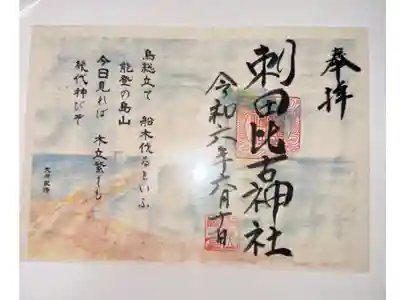 奉拝
刺田比古神社
令和六年六月十日
鳥総立て 船木伐るといふ
能登の島山
今日見れば 木立繁しも
幾代神びそ
大伴家持